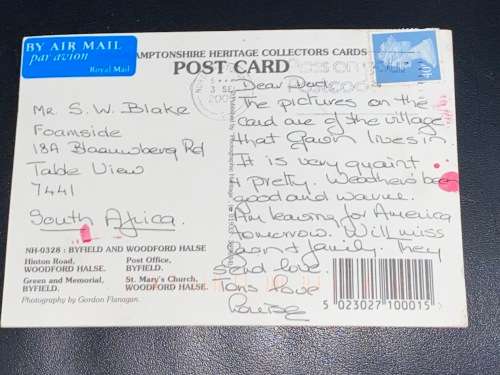 BY AIR MAIL
par avion
Royal Mail
AMPTONSHIRE HERITAGE COLLECTORS CARDS
POST CARD
3 SE
40
Mr. S. W. Blake
Foamside
18A Blaauwberg Rd
Table View
7441
South Africa.
Dear Dad,
The pictures on the
card are of the village
that Gavin lives in.
It is very quaint
& pretty. Weather's been
good and warm.
Am leaving for America
tomorrow. Will miss
Gavin & family. They
send love.
Tons love
Louise
NH-0328 : BYFIELD AND WOODFORD HALSE
Hinton Road,
WOODFORD HALSE.
Post Office,
BYFIELD.
Green and Memorial,
BYFIELD.
St. Mary's Church,
WOODFORD HALSE.
Photography by Gordon Flanagan.
5 023027 100015